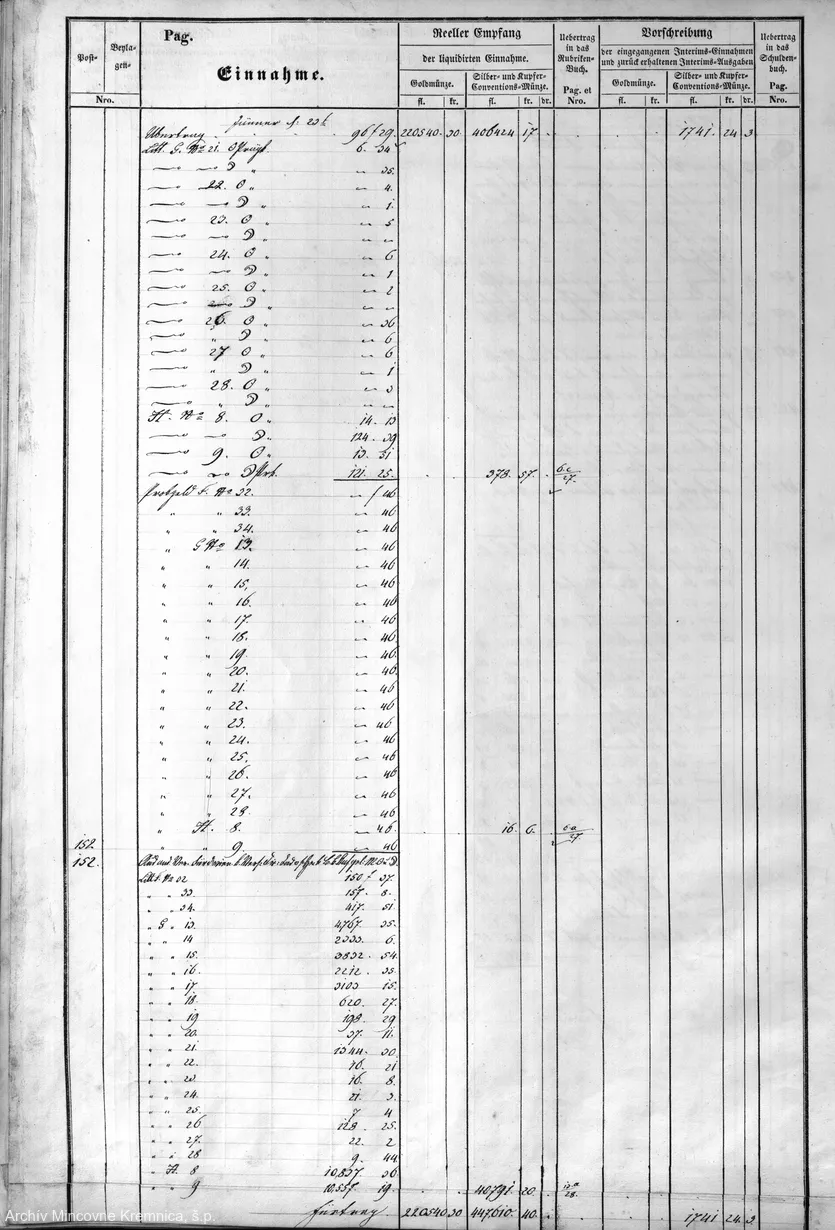 Post-
Nro.
Beyla-
gen-
Pag.
Einnahme.
Reeller Empfang
der liquidirten Einnahme.
Goldmünze.
Silber- und Kupfer-
Conventions-Münze.
fl. kr. fl. kr. dr.
Uebertrag
in das
Rubriken-
Buch.
Pag. et
Nro.
Vorschreibung
der eingegangenen Interims-Einnahmen
und zurück erhaltenen Interims-Ausgaben
Goldmünze.
Silber- und Kupfer-
Conventions-Münze.
fl. kr. fl. kr. dr.
Uebertrag
in das
Schulden-
buch.
Pag.
Nro.
Jänner
Uebertrag 96 f 29. 220540. 30 406424 17 1741. 24 3
Litt. G. No 21 6. 34
" 35.
22. " 4.
" 1.
23. " 5
" "
24. " 6
" 1
25. " 2
" "
26. " 36
" 6
27 " 6
" 1
28. " 3
" "
H. No 8. 14. 13
124. 39
9. 13. 31
121. 25. 378. 57. 6c/27.
Probgeld F. No 32. " f 46
" " 33. " 46
" " 34. " 46
" G No 13. " 46
" " 14. " 46
" " 15. " 46
" " 16. " 46
" " 17. " 46
" " 18. " 46
" " 19. " 46
" " 20. " 46.
" " 21. " 46
" " 22. " 46
" " 23. " 46
" " 24. " 46
" " 25. " 46
" " 26. " 46
" " 27. " 46
" " 28. " 46
" H. 8. " 46. 16. 6. 6a/27
152. " " 9. " 46
152.
Litt F. No 32 150 f 37
" " 33. 157. 8.
" " 34. 417. 51
" G " 13. 4767. 35.
" " 14 2333. 6.
" " 15. 3832. 54.
" " 16. 2212. 35.
" " 17 3103 15.
" " 18. 620. 27.
" " 19 198. 29
" " 20. 37. 11.
" " 21 1344. 30.
" " 22. 16. 21
" " 23. 16. 8.
" " 24. 21 3.
" " 25. 7 4
" " 26 128. 25.
" " 27. 22. 2
" " 28 9. 44
" H. 8 10,837. 36
" " 9 10,557. 19. 40791. 20.
Fürtrag 220540 30 447610. 40. 1741 24. 3
Archív Mincovne Kremnica, š.p.